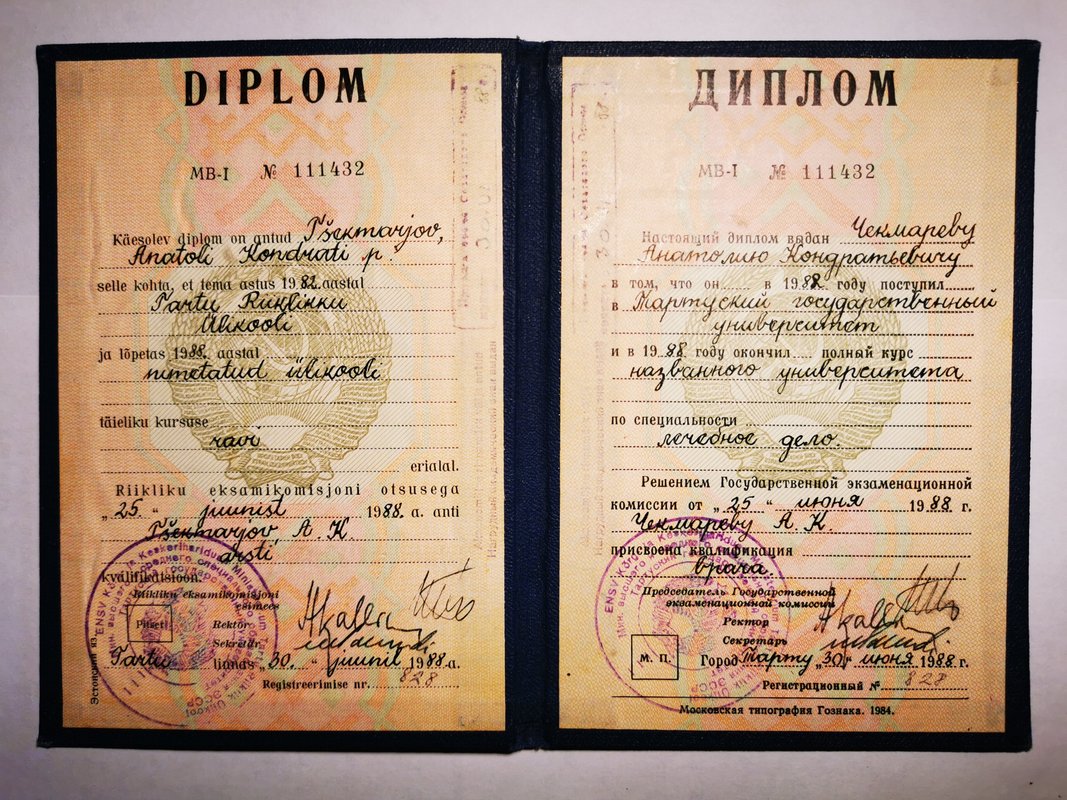 DIPLOM
MB-I № 111432
Käesolev diplom on antud Tšekmarjov,
Anatoli Kondrati p.
selle kohta, et tema astus 1982. aastal
Tartu Riiklikku
Ülikooli
ja lõpetas 1988. aastal
nimetatud ülikooli
täieliku kursuse
ravi
erialal.
Riikliku eksamikomisjoni otsusega
„25." juunist 1988. a. anti
Tšekmarjov, A. K.
arsti
kvalifikatsioon.
Riikliku eksamikomisjoni
esimees
Pitsati
Rektor
Sekretär
Tartu linnas „30." juunil 1988. a.
Registreerimise nr. 828
Эстонский яз.
ДИПЛОМ
MB-I № 111432
Настоящий диплом выдан Чекмареву
Анатолию Кондратьевичу
в том, что он в 1982. году поступил
в Тартуский государственный
университет
и в 1988. году окончил полный курс
названного университета
по специальности
лечебное дело
Решением Государственной экзаменационной
комиссии от „25" июня 1988 г.
Чекмареву А. К.
присвоена квалификация
врача
Председатель Государственной
экзаменационной комиссии
Ректор
Секретарь
М. П.
Город Тарту „30" июня 1988 г.
Регистрационный № 828
Московская типография Гознака. 1984.